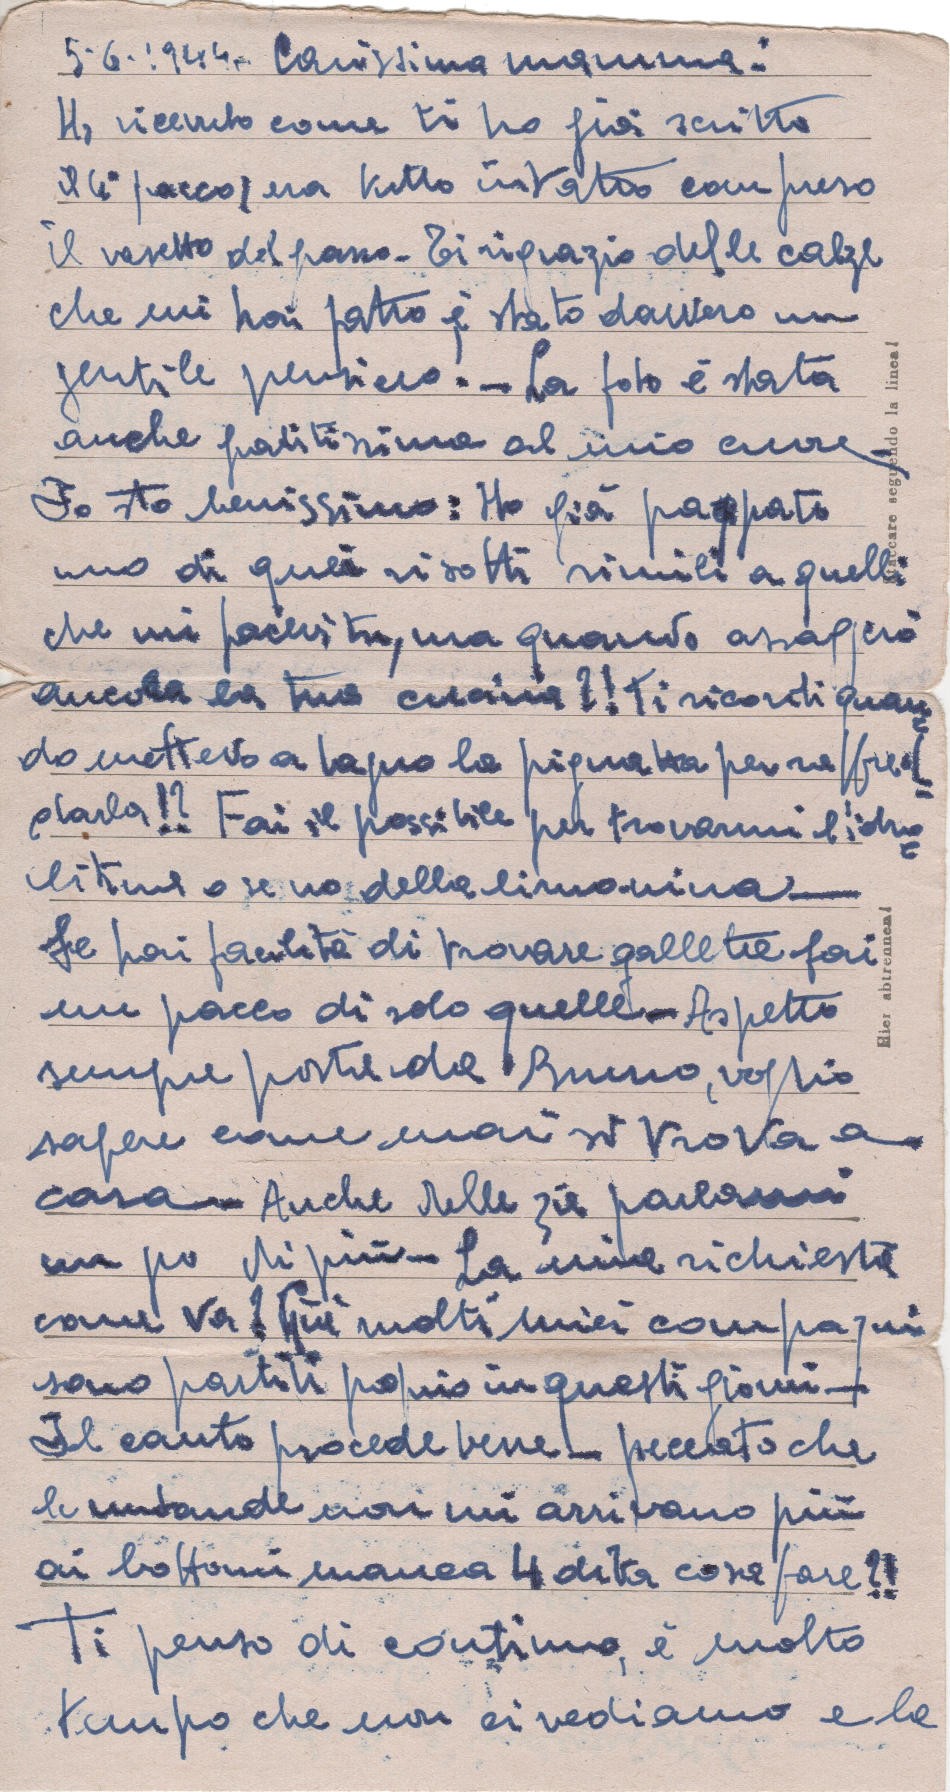 5-6-1944- Carissima mamma:
Ho ricevuto come ti ho già scritto
il 4° pacco, era tutto intatto compreso
il vasetto del grasso. Ti rigrazio delle calze
che mi hai fatto è stato davvero un
gentile pensiero. - La foto è stata
anche graditissima al mio cuore -
Io sto benissimo: Ho già pappato
uno di quei risotti simili a quelli
che mi facevi tu, ma quando assaggerò
ancora la tua cucina?! Ti ricordi quan
do mettevo a bagno la pignatta per raffred
darla!? Fai il possibile per trovarmi l'idro
litina o se no della limonina -
Se hai facilità di trovare gallette fai
un pacco di solo quelle - Aspetto
sempre posta da Bruno, voglio
sapere come mai si trova a
casa - Anche delle zie parlami
un po di più - La mia richiesta
come va? Qui molti miei compagni
sono partiti proprio in questi giorni -
Il canto procede bene - peccato che
le mutande non mi arrivano più
ai bottoni manca 4 dita cosa fare?!
Ti penso di continuo, è molto
tempo che non ci vediamo e la
Staccare seguendo la linea!
Hier abtrennen!